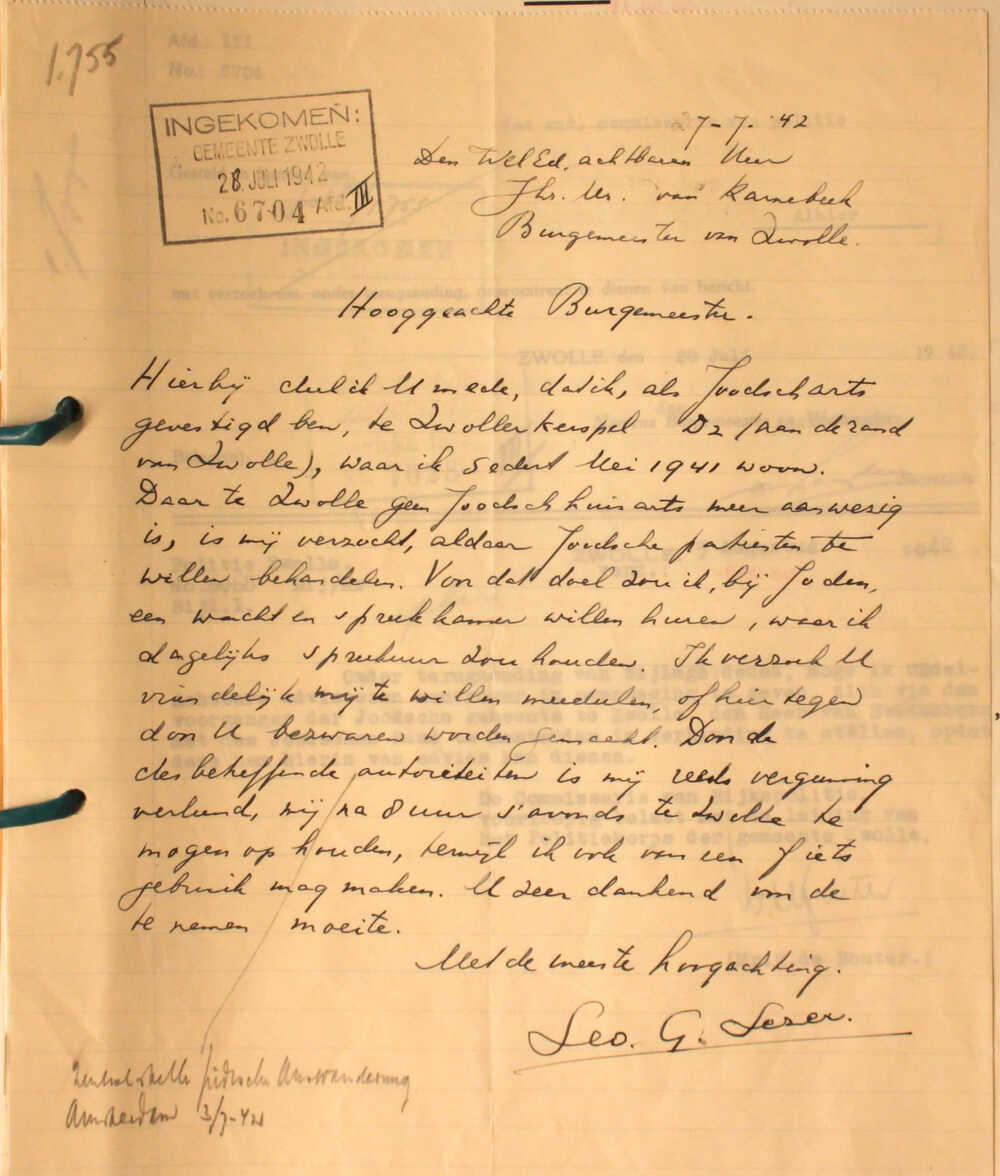 1.755
INGEKOMEN:
GEMEENTE ZWOLLE
28 JULI 1942
No. 6704 Afd. III
27-7-'42
Den WelEd. achtbaren Heer
Jhr. Mr. van Karnebeek
Burgemeester van Zwolle.
Hooggeachte Burgemeester.
Hierbij deel ik U mede, dat ik, als Joodsch arts
gevestigd ben, te Zwollerkerspel D2 (aan de rand
van Zwolle), waar ik sedert Mei 1941 woon.
Daar te Zwolle geen Joodsch huisarts meer aanwezig
is, is mij verzocht, aldaar Joodsche patienten te
willen behandelen. Voor dat doel zou ik, bij Joden,
een wacht en spreekkamer willen huren, waar ik
dagelijks spreekuur zou houden. Ik verzoek U
vriendelijk mij te willen meedeelen, of hiertegen
door U bezwaren worden gemaakt. Door de
desbetreffende autoriteiten is mij reeds vergunning
verleend, mij na 8 uur s'avonds te Zwolle te
mogen op houden, terwijl ik ook van een fiets
gebruik mag maken. U zeer dankend voor de
te nemen moeite.
Met de meeste hoogachting.
Leo. G. Leser.
Zentralstelle jüdische Auswanderung
Amsterdam 3/7-42
ZWOLLE, den 28 Juli